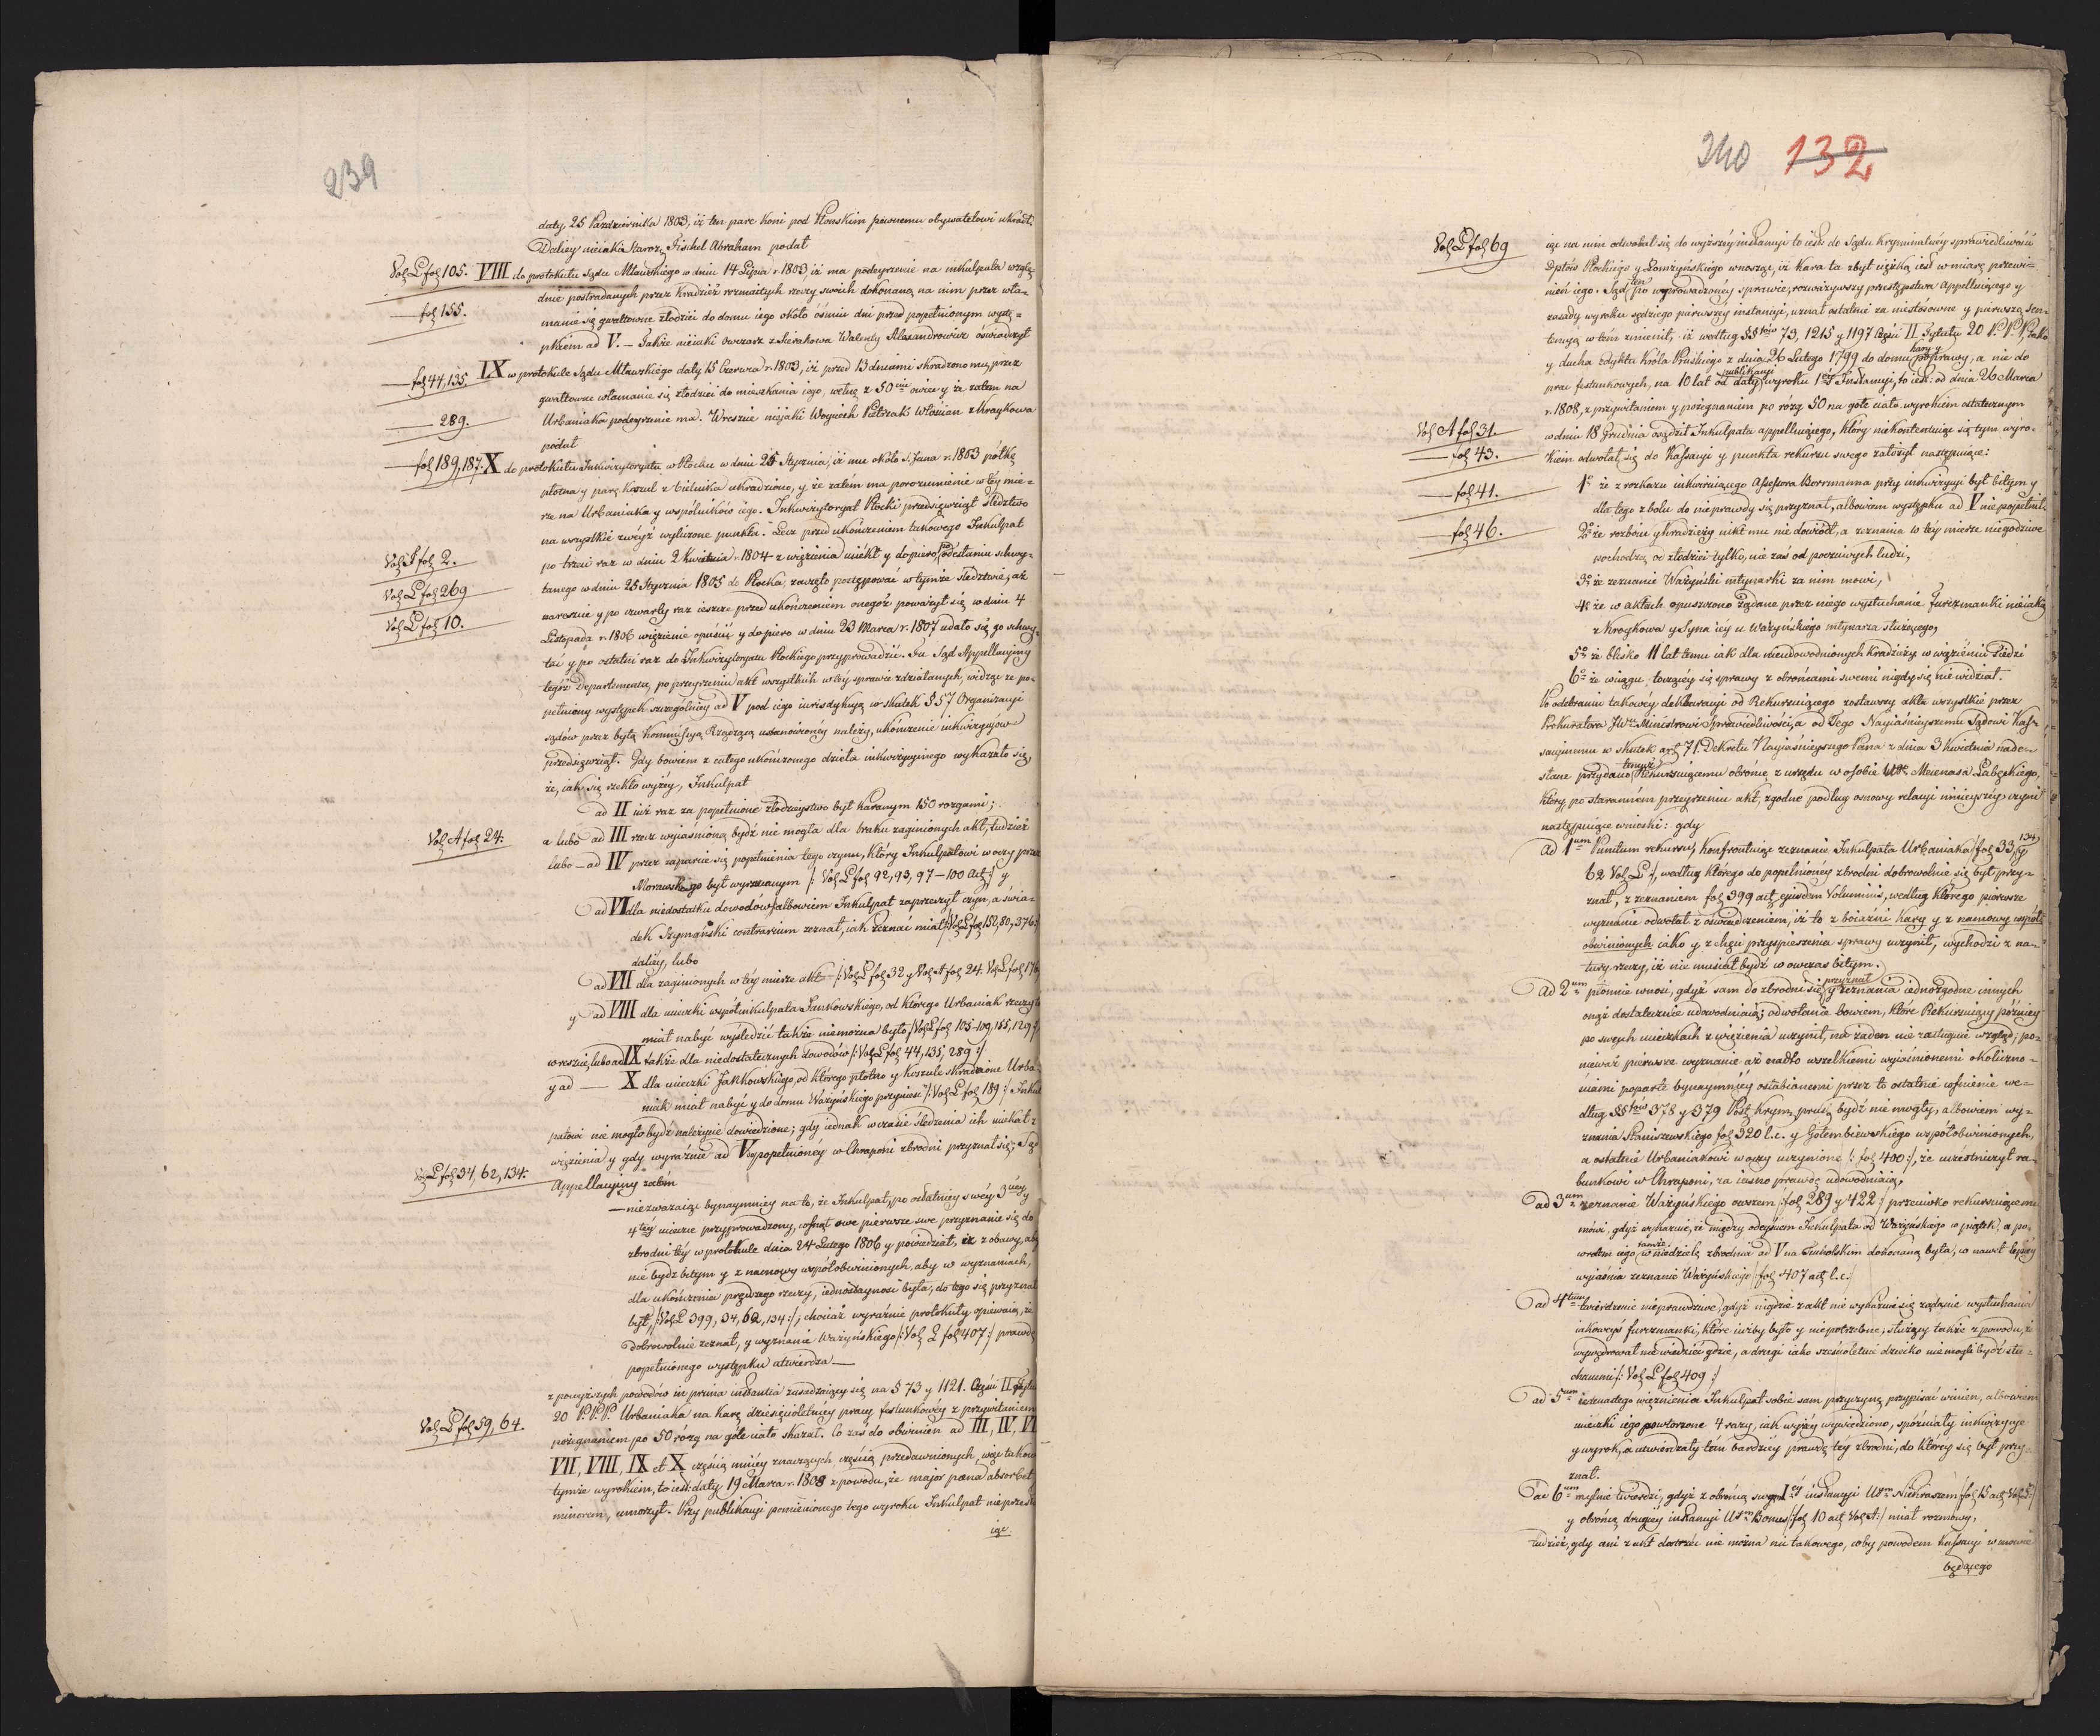 239
daty 25 Pazdziernika 1803, iż ten parę koni pod Płonskim pewnemu obywatelowi ukradł.
Daliey nieiaki Staroz. Fischel Abraham podał
Vol. L fol. 105. VIII do protokułu Sądu Mławskiego w dniu 14 Lipca r. 1803, iż ma podeyrzenie na inkulpata wzglę-
dnie postradanych przez kradzież rozmaitych rzeczy swoich dokonaną na nim przez wła-
— fol. 155.
manie się gwałtowne złodziei do domu iego około ośmiu dni przed popełnionym wystę-
pkiem ad V. — Także nieiaki Owczarz z Sierakowa Walenty Alexandrowicz oświadczył
— fol. 44, 135. IX w protokule Sądu Mławskiego daty 15 Czerwca r. 1803, iż przed 13 dniami skradziono mu, przez
gwałtowne włamanie się złodziei do mieszkania iego, wełnę z 50 owiec y że zatem na
— 289.
Urbaniaka podeyrzenie ma. Wreszcie nieiaki Woyciech Pietrzak Włościan z Kroykowa
podał
— fol. 189, 187. X do protokułu Inkwizytoryatu w Płocku w dniu 25 Stycznia, iż mu około S. Jana r. 1803 półkę
płotna y parę koszul z bielnika ukradziono, y że zatem ma porozumienie w tey mie-
rze na Urbaniaka y wspólników iego. Inkwizytoryat Płocki przedsięwziął śledztwo
na wszystkie zwyż wyliczone punkta. Lecz przed ukończeniem takowego Inkulpat
po trzeci raz w dniu 2 Kwietnia r. 1804 z więzienia uciekł y dopiero po odesłaniu schwy-
Vol. I fol. 2.
tanego w dniu 25 Stycznia 1805 do Płocka, zaczęto postępować w tymże śledztwie, aż
Vol. L fol. 269
nareszcie y po czwarty raz ieszcze przed ukończeniem onegoż poważył się w dniu 4
Vol. L fol. 10.
Listopada r. 1806 więzienie opuścić y dopiero w dniu 23 Marca r. 1807 udało się go schwy-
tać y po ostatni raz do Inkwizytoryatu Płockiego przyprowadzić. Tu Sąd Appellacyiny
tegóż Departamentu, po przeyrzeniu akt wszystkich w tey sprawie zdziałanych, widząc że po-
pełniony występek szczególniey ad V pod iego iurisdykcyą w skutek § 57 Organizacyi
sądów przez byłą Kommissyą Rządzącą ustanowioney należy, ukończenie inkwizycyów
przedsięwziął. Gdy bowiem z całego ukończonego dzieła inkwizycyinego wykazało się,
że, iak się rzekło wyżey, Inkulpat
ad II iuż raz za popełnione złodzieystwo był karanym 150 rozgami;
Vol. A fol. 24.
a lubo ad III rzecz wyiaśnioną bydź nie mogła dla braku zaginionych akt, tudzież
lubo — ad IV przez zaparcie się popełnienia tego czynu, który Inkulpatowi w oczy przez
Morawskiego był wyrzucanym /: Vol. L fol. 92, 93, 97 — 100 act :/ y
ad VI dla niedostatku dowodów, albowiem Inkulpat zaprzeczył czyn, a świa-
dek Szymański contrarium zeznał, iak zeznać miał /: Vol. L fol. 152, 80, 376 :/
daliey, lubo
ad VII dla zaginionych w tey mierze akt /: Vol. L fol. 32 y Vol. A fol. 24. Vol. L fol. 176
y ad VIII dla ucieczki współinkulpata Jankowskiego, od którego Urbaniak rzeczy te
miał nabyć wyśledzić także niemożna było /: Vol. L fol. 105-109, 155, 129 :/
wreszcie, lubo ad IX także dla niedostatecznych dowodów /: Vol. L fol. 44, 135, 289 :/
y ad — X dla ucieczki Jankowskiego, od którego płotno y koszule skradzione Urba-
niak miał nabyć y do domu Ważyńskiego przynieść /: Vol. L fol. 189 :/ Inkul
patowi nie mogło bydź należycie dowiedzione; gdy iednak w czasie śledzenia ich uciekał z
więzienia y gdy wyraźnie ad V do popełnioney w Chraponi zbrodni przyznał się; Sąd
Vol. L fol. 34, 62, 134.
Appellacyiny zatém
— niezważaiąc bynaymniey na to, że Inkulpat, po ostatniey swéy 3ciey y
4tey ucieczce przyprowadzony, cofnął owe pierwsze swe przyznanie się do
zbrodni téy w protokule dnia 24 Lutego 1806 y powiedział, iż z obawy, aby
nie bydź bitym y z namowy współobwinionych, aby w wyznaniach,
dla ukończenia prędszego rzeczy, iednostayność była, do tego się przyznał
był, /: Vol. L 399, 34, 62, 134 :/, chociaż wyraźnie protokuły opiewaią, że
dobrowolnie zeznał, y wyznanie Ważyńskiego /: Vol. L fol. 407 :/ prawdę
popełnionego występku utwierdza —
z powyższych powodów in prima instantia zasadzaiącey się na § 73 y 1121. Części II Tytułu
20 P. P. P. Urbaniaka na karę dziesięcioletniey pracy festunkowey z przywitaniem
Vol. L fol. 59, 64.
pożegnaniem po 50 rózg na gołe ciało skazał. Co zaś do obwinień ad III, IV, VI
VII, VIII, IX et X częścią mniéy znaczących częścią przedawnionych, więc takowe
tymże wyrokiem, to iest: daty 19 Marca r. 1808 z powodu, że major pœna absorbet
minorem, umorzył. Przy publikacyi pomienionego tego wyroku Inkulpat nieprzesta
iąc
240 132
Vol. L fol. 69
iąc na nim odwołał się do wyższéy instancyi to iest: do Sądu kryminalnéy sprawiedliwości
Dptów Płockiego y Łomżyńskiego wnosząc, iż kara ta zbyt ciężką iest w miarę przewi-
nień iego. Sąd ten po wyprowadzonéy sprawie, rozważywszy przestępstwa appelluiącego y
zasady wyroku sędziego pierwszéy instancyi, uznał ostatnie za niestosowne y pierwszą sen-
tencyą w tém zmienił, iż według §§ fów 73, 1215 y 1197 Części II Tytułu 20 P. P. P. tak
y ducha edyktu Króla Pruskiego z dnia 26 Lutego 1799 do domu kary y poprawy, a nie do
prac festunkowych, na 10 lat od daty publikacyi wyroku 1éy Instancyi, to iest: od dnia 26 Marca
r. 1808, z przywitaniem y pożegnaniem po rózg 50 na gołe ciało wyrokiem ostatecznym
Vol. A fol. 31.
w dniu 18 Grudnia osądził Inkulpata appelluiącego, który niekontentuiąc się tym wyro-
— fol. 43.
kiem odwołał się do Kassacyi y punkta rekursu swego założył następuiące:
— fol. 41.
1o że z rozkazu inkwiruiącego Assessora Borrmanna przy inkwizycyi był bitym y
dla tego z bolu do nieprawdy się przyznał, albowiem występku ad V nie popełnił,
— fol. 46.
2o że rozboiu y kradzieży nikt mu nie dowiódł, a zeznania w tey mierze niegodziwe
pochodzą od złodziei tylko, nie zaś od poczciwych ludzi,
3o że zeznanie Ważyński młynarki za nim mowi,
4o że w aktach opuszczono żądane przez niego wysłuchanie furczmanki nieiakiey
z Kroykowa y Syna iéy u Ważyńskiego młynarza służącego,
5o że blisko 11 lat temu iak dla nieudowodnionych kradzieży w więzieniu siedzi
6o że w ciągu toczącey się sprawy z obrońcami swemi nigdy się nie widział.
Po odebraniu takowéy deklaracyi od Rekursuiącego zostawszy akta wszystkie przez
Prokuratora JWu Ministrowi Sprawiedliwości, a od Tego Nayiaśnieyszemu Sądowi Kas-
sacyinemu w skutek art. 71. Dekretu Nayiaśnieyszego Pana z dnia 3 Kwietnia nade-
słane przydano temuż Rekursuiącemu obronę z urzędu w osobie Ur. Mecenasa Łabęckiego,
który, po staranném przeyrzeniu akt, zgodne podług osnowy relacyi ninieyszey czyni
następuiące wnioski: gdy
Ad 1um Punctum rekursu, konfrontuiąc zeznanie Inkulpata Urbaniaka /: fol. 33, 134 y
62 Vol. L :/, według którego do popełnioney zbrodni dobrowolnie się był przy-
znał, z zeznaniem fol. 399 act. ejusdem Voluminis, według którego pierwsze
wyznanie odwołał z oświadczeniem, iż to z boiaźni kary y z namowy współ-
obwinionych iako y z chęci przyspieszenia sprawy uczynił, wychodzi z na-
tury rzeczy, iż nie musiał bydź w owczas bitym.
Ad 2um płonnie wnosi, gdyż sam do zbrodni się przyznał y zeznania iednozgodne innych
onąż dostatecznie udowodniaią; odwołanie bowiem, które Rekursuiący późniey
po swych ucieczkach z więzienia uczynił, na żaden nie zasługuie wzgląd, po-
nieważ pierwsze wyznanie aż nadto wszelkiemi wyiaśnionemi okoliczno-
ściami poparte bynaymniéy osłabionemi przez to ostatnie cofnienie we-
dług §§ fów 378 y 379 Post. Krym. prus. bydź nie mogły, albowiem wy-
znania Staniszewskiego fol. 320 l. c. y Gołembiewskiego współobwinionych,
a ostatnie Urbaniakowi w oczy uczynione /: fol. 400 :/, że uczestniczył ra-
bunkowi w Chraponi, za iasno prawdę udowodniaią,
ad 3um zeznanie Ważyńskiego owszem /: fol. 289 y 422 :/ przeciwko rekursuiącemu
mówi, gdyż wykazuie, że między odeyściem Inkulpata od Ważyńskiego w piątek, a po-
wrotem iego tamże w niedzielę zbrodnia ad V na Tucholskim dokonaną była, co nawet lepiéy
wyiaśnia zeznanie Ważyńskiego /: fol. 407 act. l. c. :/
ad 4tum twierdzenie nieprawdziwe, gdyż nigdzie z akt nie wykazuie się żądanie wysłuchania
iakoweyś furczmanki, które iużby było y niepotrzebne; służący także z powodu, że
wywędrował niewiedzieć gdzie, a drugi iako sześcioletnie dziecko nie mogli bydź słu-
chanemi /: Vol. L fol. 409 :/
ad 5um iedenastego więznienia Inkulpat sobie sam przyczynę przypisać winien, albowiem
ucieczki iego powtorzone 4 razy, iak wyżéy wywiedziono, spóźniały inkwizycye
y wyrok, a utwierdzały tém bardziéy prawdę téy zbrodni, do któréy się był przy-
znał.
ad 6um mylnie twierdzi, gdyż z obrońcą swym Iéy instancyi Urm Niekraszem /: fol. 15 act. Vol. L :/
y obrońcą drugiey instancyi Urm Bonus /: fol. 10 act. Vol. A :/ miał rozmowy,
tudzież, gdy ani z akt dostrzec nie można nic takowego, coby powodem kassacyi w mowie
będącego